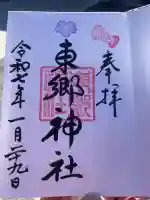 奉拝
東郷神社
令和七年一月二十九日